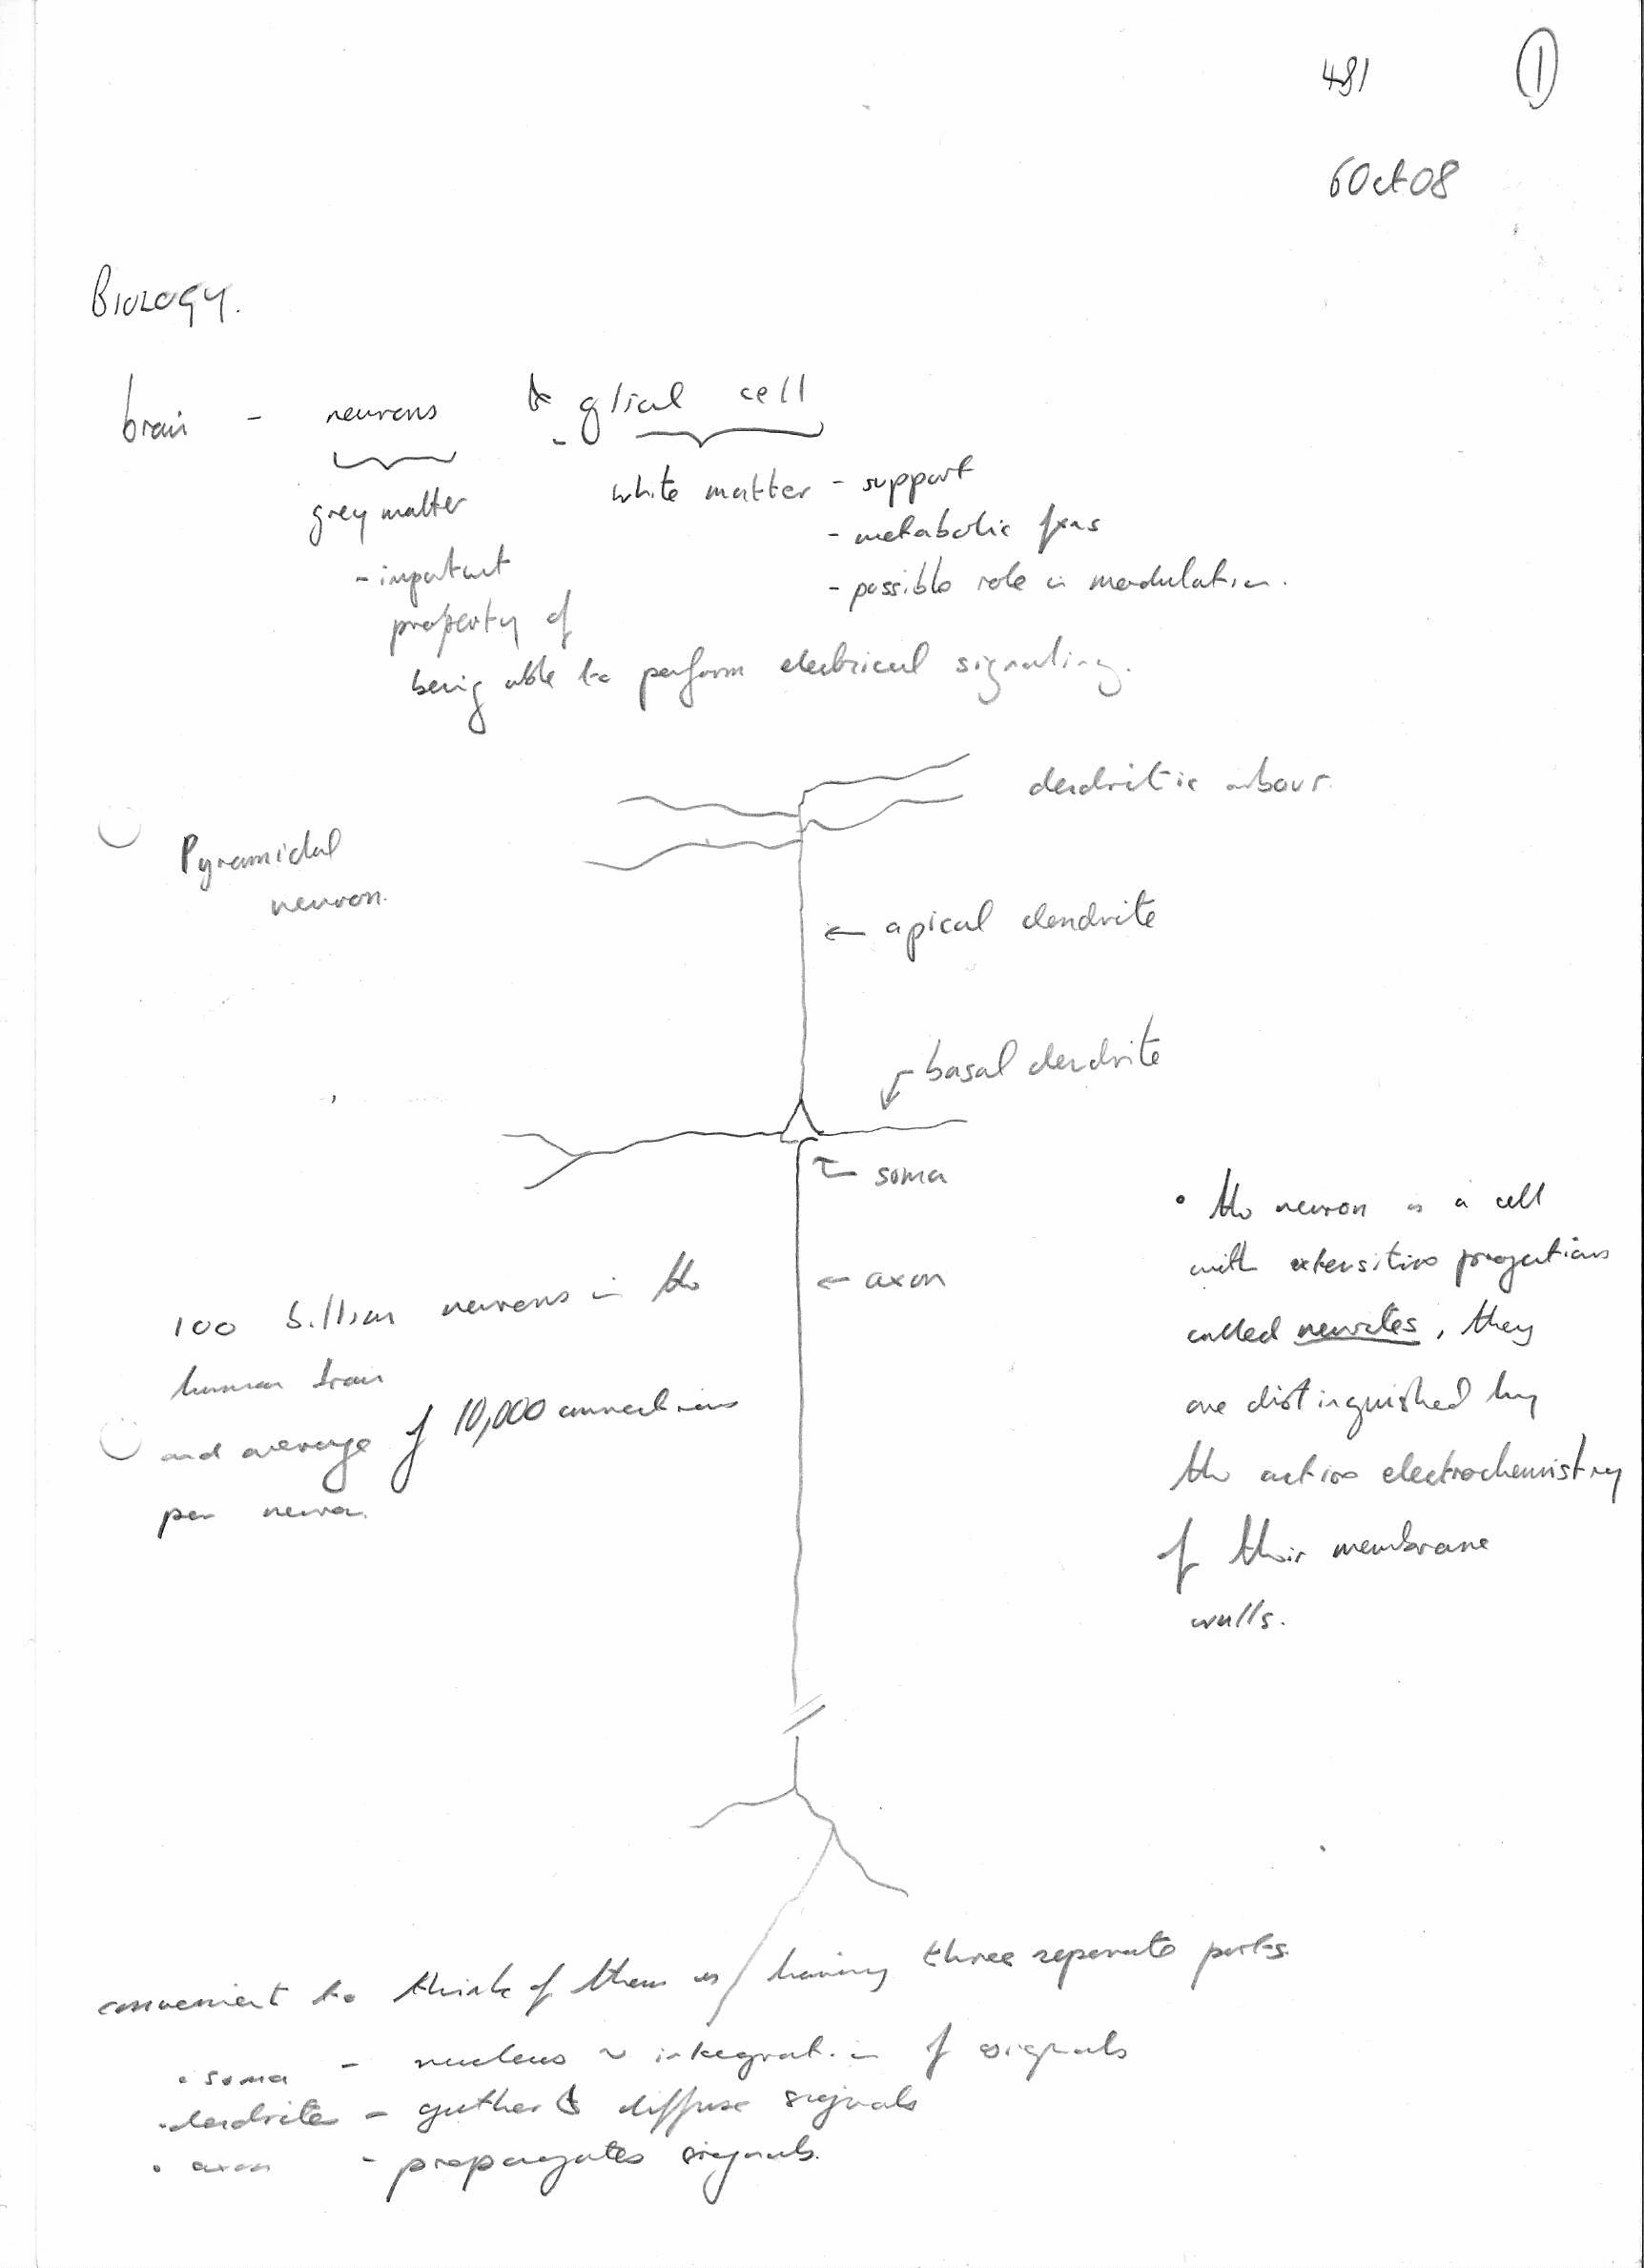 481
①
6 Oct 08
BIOLOGY.
brain - neurons & glial cell
grey matter
white matter - support
- metabolic fxns
- possible role in modulation.
- important
property of
being able to perform electrical signaling.
dendritic arbour.
Pyramidal
neuron.
← apical dendrite
basal dendrite
soma
← axon
• the neuron is a cell
with extensive projections
called neurites, they
are distinguished by
the active electrochemistry
of their membrane
walls.
100 billion neurons in the
human brain
and average of 10,000 connections
per neuron.
convenient to think of them as having three separate parts.
• soma - nucleus ~ integration of signals
• dendrites - gather & diffuse signals
• axon - propagates signals.